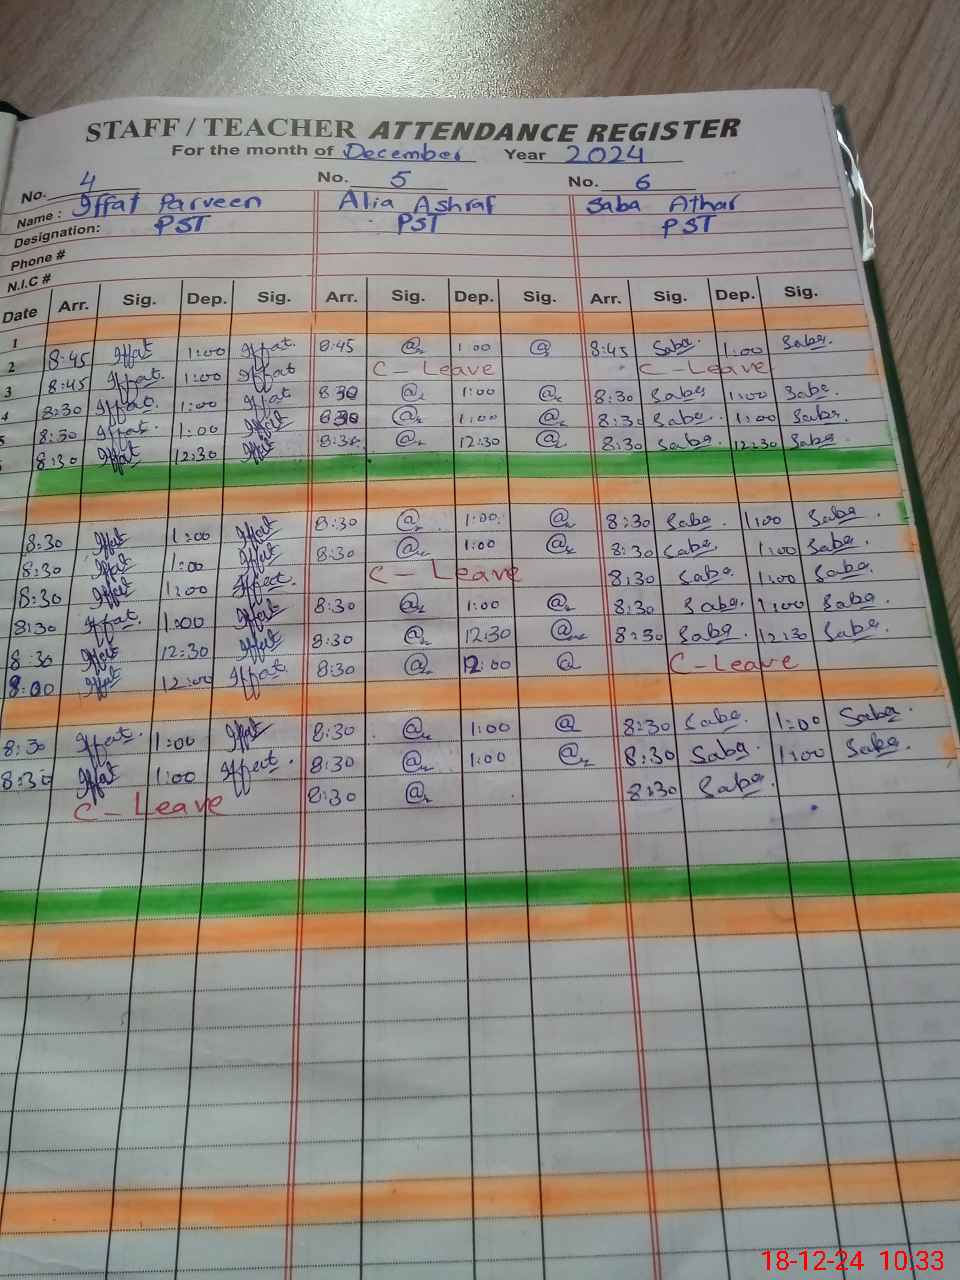 STAFF / TEACHER ATTENDANCE REGISTER
For the month of December Year 2024
No. 4 No. 5 No. 6
Name : Iffat Parveen Alia Ashraf Saba Athar
Designation: PST PST PST
Phone #
N.I.C #
Date Arr. Sig. Dep. Sig. Arr. Sig. Dep. Sig. Arr. Sig. Dep. Sig.
1
2 8:45 Iffat 1:00 Iffat. 8:45 @ 1:00 @ 8:45 Saba. 1:00 Saba.
3 8:45 Iffat. 1:00 Iffat C - Leave C - Leave
4 8:30 Iffat. 1:00 Iffat 8:30 @ 1:00 @ 8:30 Saba 1:00 Saba.
5 8:30 Iffat. 1:00 Iffat 8:30 @ 1:00 @ 8:30 Saba. 1:00 Saba.
8:30 Iffat 12:30 Iffat 8:30 @ 12:30 @ 8:30 Saba. 12:30 Saba.
8:30 Iffat 1:00 Iffat 8:30 @ 1:00 @ 8:30 Saba. 1:00 Saba.
8:30 Iffat 1:00 Iffat 8:30 @ 1:00 @ 8:30 Saba. 1:00 Saba.
8:30 Iffat 1:00 Iffat. C - Leave 8:30 Saba. 1:00 Saba.
8:30 Iffat. 1:00 Iffat 8:30 @ 1:00 @ 8:30 Saba. 1:00 Saba.
8:30 Iffat 12:30 Iffat 8:30 @ 12:30 @ 8:30 Saba. 12:30 Saba.
8:00 Iffat 12:00 Iffat. 8:30 @ 12:00 @ C - Leave
8:30 Iffat. 1:00 Iffat 8:30 @ 1:00 @ 8:30 Saba. 1:00 Saba.
8:30 Iffat 1:00 Iffat. 8:30 @ 1:00 @ 8:30 Saba. 1:00 Saba.
C - Leave 8:30 @ 8:30 Saba.
18-12-24 10:33